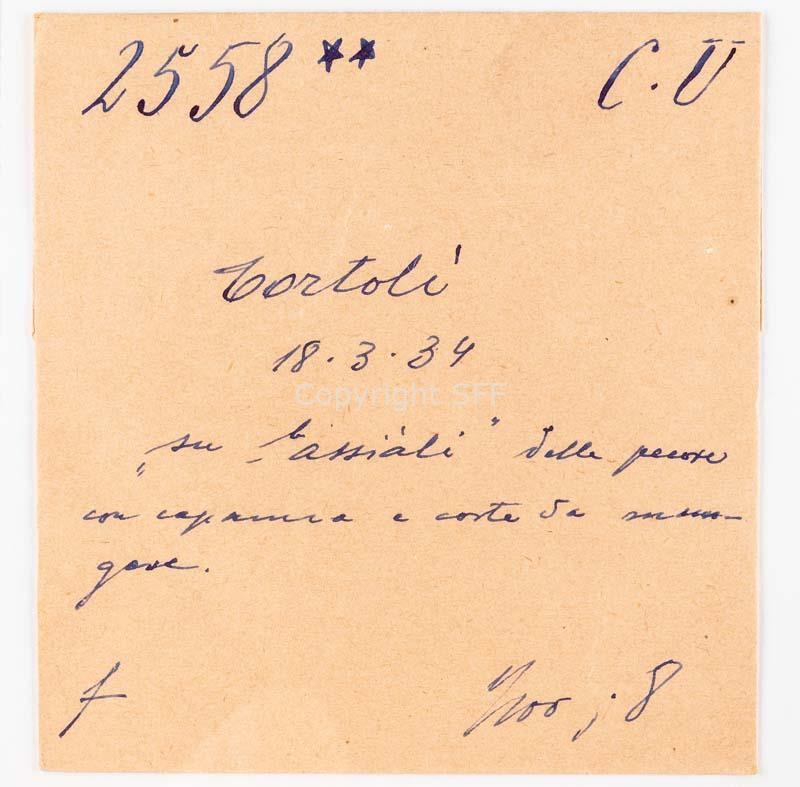 2558 ** C.U
Tortolì
18.3.34
Copyright SFF
„su bassiáli" delle pecore
con capanna e corte da mun-
gere.
f
; 8